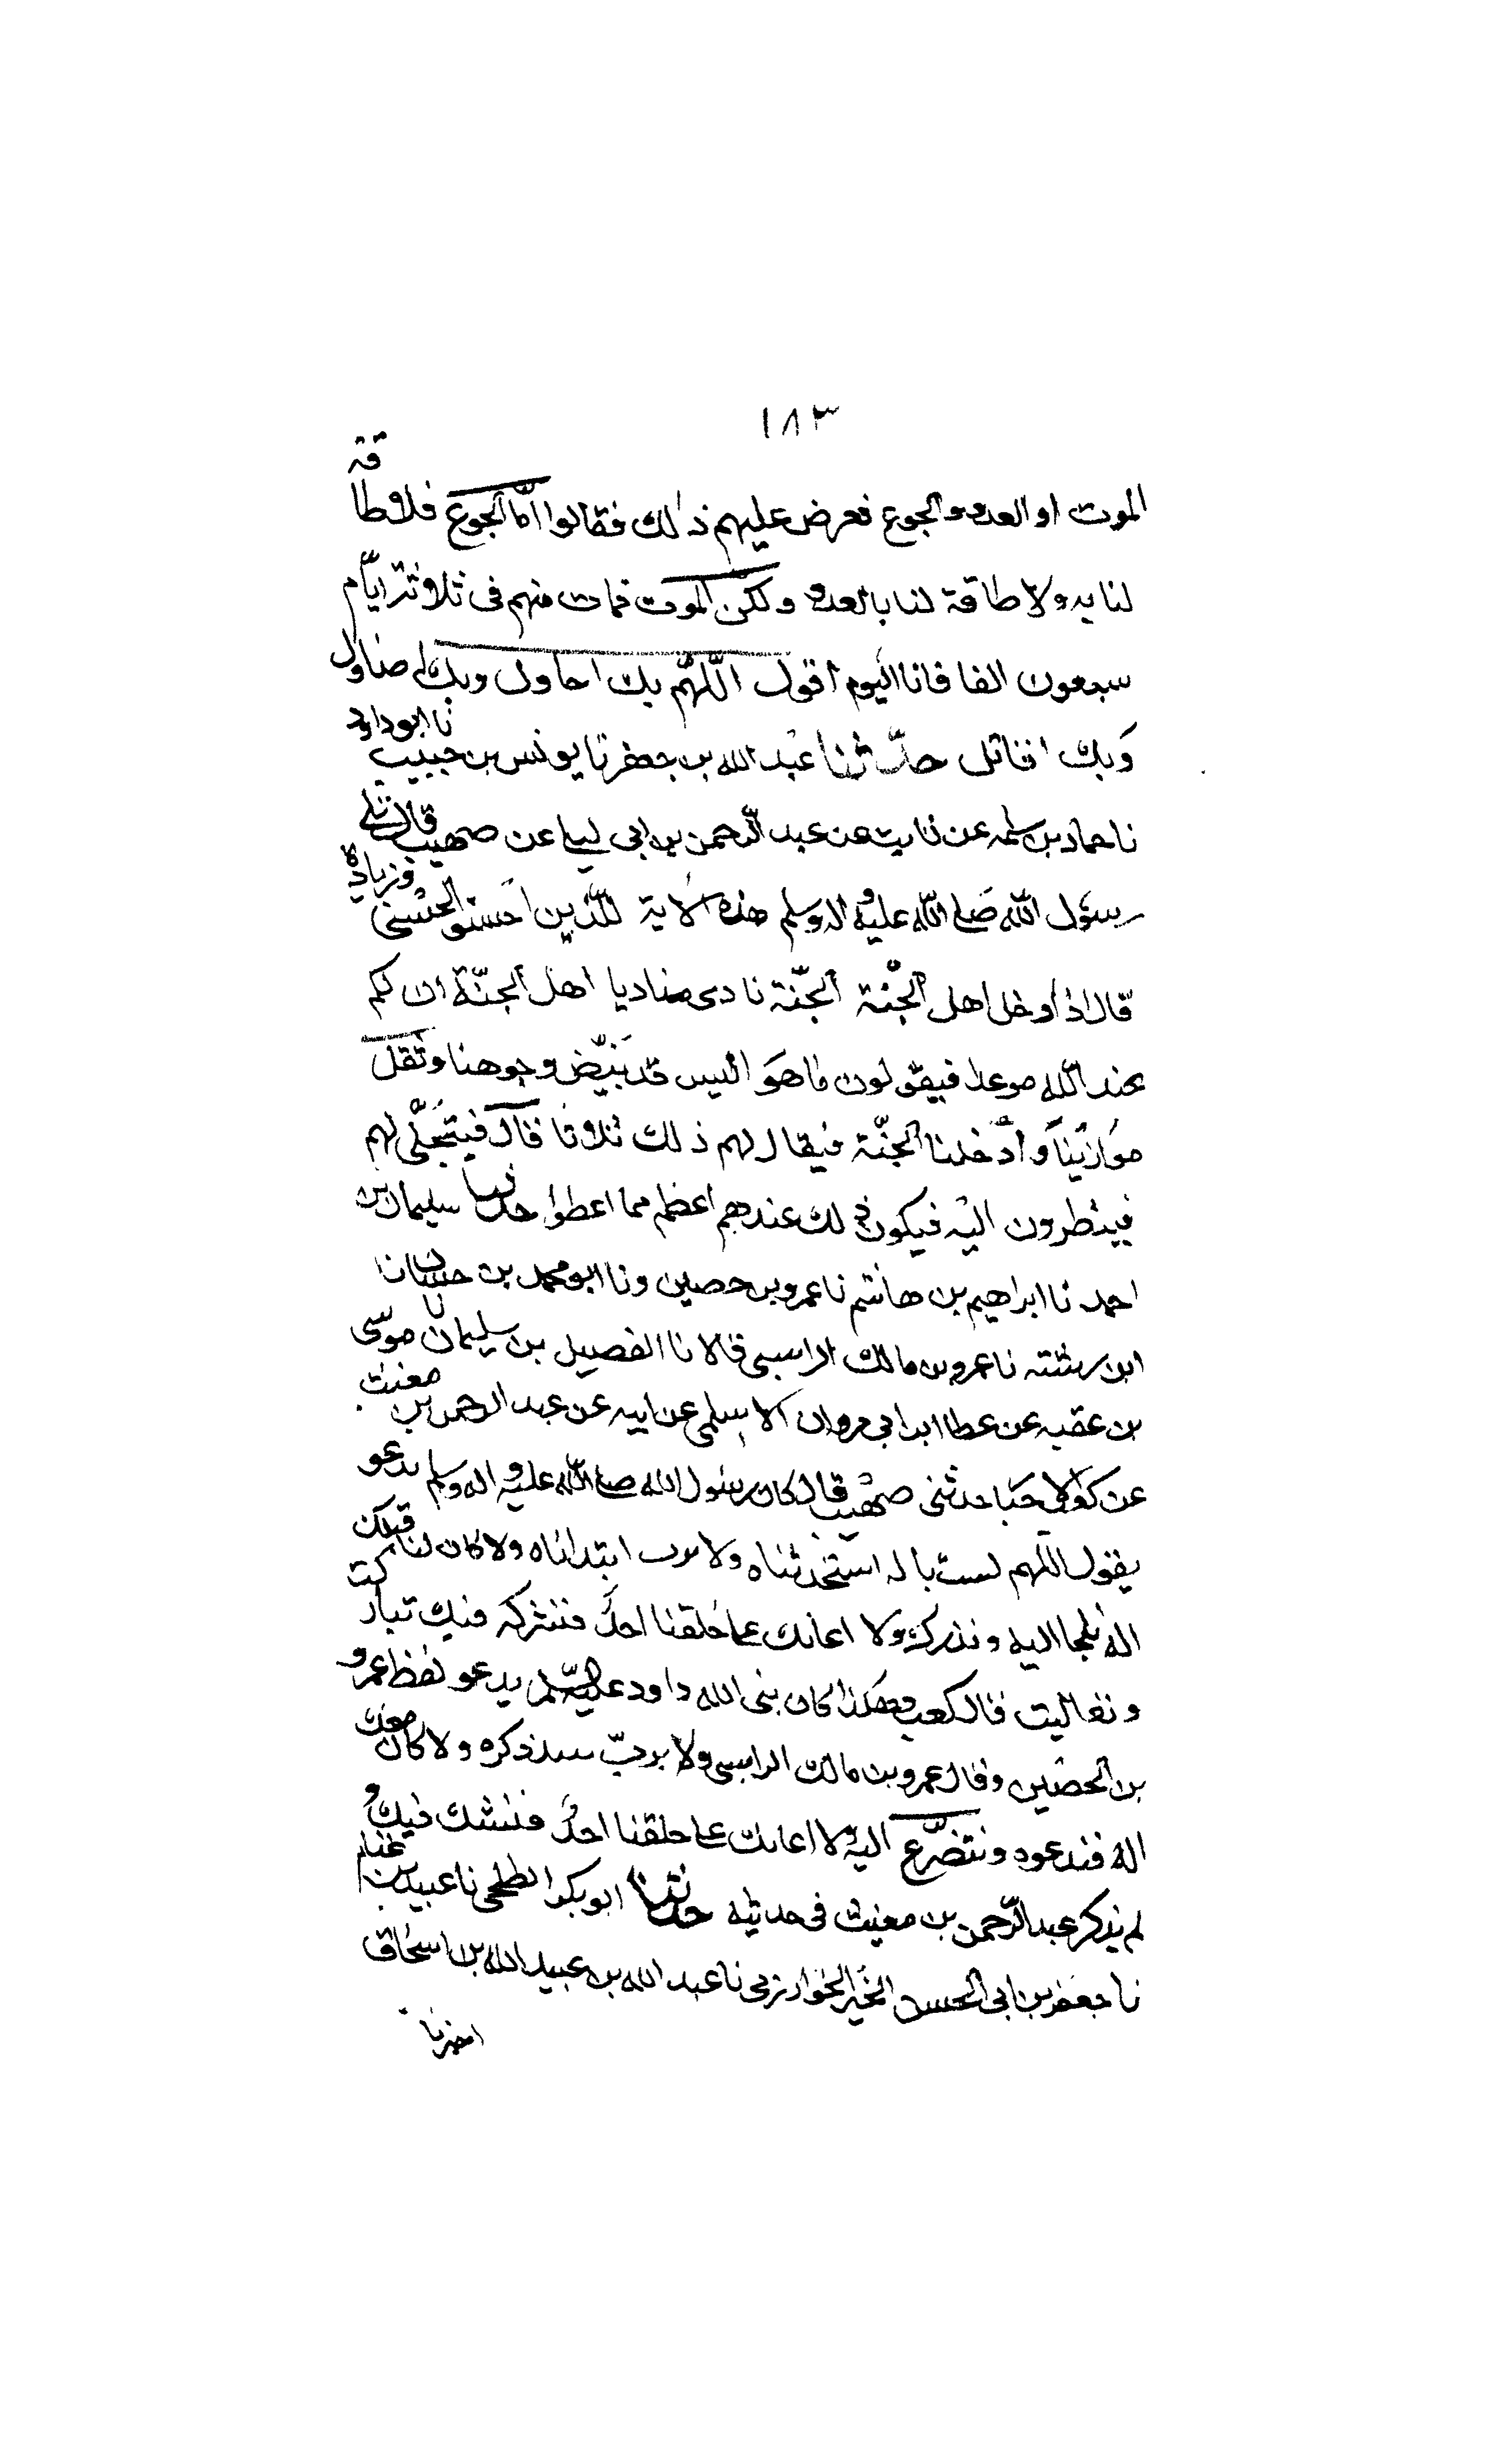 ١٨٣
الموت او العدو والجوع فعرض عليهم ذلك فقالوا امّا الجوع فلا طاقة
لنا به ولا طاقة لنا بالعدو ولكن الموت فمات منهم فى ثلاثة ايّام
سبعون الفا فانا اليوم اقول اللّهمّ بك احاول وبك اصاول
وَبك اقاتل حدّثنا عبد الله بن جعفر نا يونس بن حبيب نا ابو داود
نا حماد بن سلمه عن ثابت عن عبد الرّحمن بن ابى ليلى عن صهيب قال تلى
رسول اللّه صَلى اللّه عليه واله وسلم هذه الاية للّذين احسنوا الحسنى وزيادة
قال اذا دخل اهل الجنّة الجنّة نادى مناديا اهل الجنّة ان لكم
عند اللّه موعدا فيقولون ما هَو اليس قد بَيّض وجوهنا وثقل
موازيننا وادخلنا الجنّة فيقال لهم ذلك ثلاثا قال فيتجلّى لهم
فينظرون اليه فيكون ذلك عندهم اعظم مما اعطوا حدثنا سليمان بن
احمد نا ابراهيم بن هاشم نا عمرو بن حصين ونا ابو محمد بن حسان نا
ابن رشته نا عمرو بن مالك الراسبى قالا نا الفضيل بن سليمان نا موسى
بن عقبه عن عطا ابن ابى مروان الاسلمى عن ابيه عن عبد الرحمن بن مغيث
عن كعب الاحبار حدثنى صهيب قال كان رسول الله صلى اللّه عليه واله وسلم يدعو
يقول اللهم لست باله استحدثناه ولا برب ابتدأناه ولا كان لنا قبلك
اله نلجا اليه ونذرك ولا اعانك على خلقنا احدٌ فنشركه فيك تباركت
وتعاليت قال كعب وهكذا كان نبى الله داود عليه السّلم يدعو لفظ عمرو
بن الحصين وقال عمرو بن مالك الراسبى ولا بربّ ذكره ولا كان معك
اله فندعوه ونتضرّع اليه ولا اعانك على خلقنا احدٌ فنشك فيك و
لم يذكر عبد الرّحمن بن مغيث فى حديثه حدثنا ابو بكر الطلحى نا عبيد بن غنام
نا جعفر بن ابى الحسن الخوارزمى نا عبد الله بن عبيد الله بن اسحاق
اخبرنا